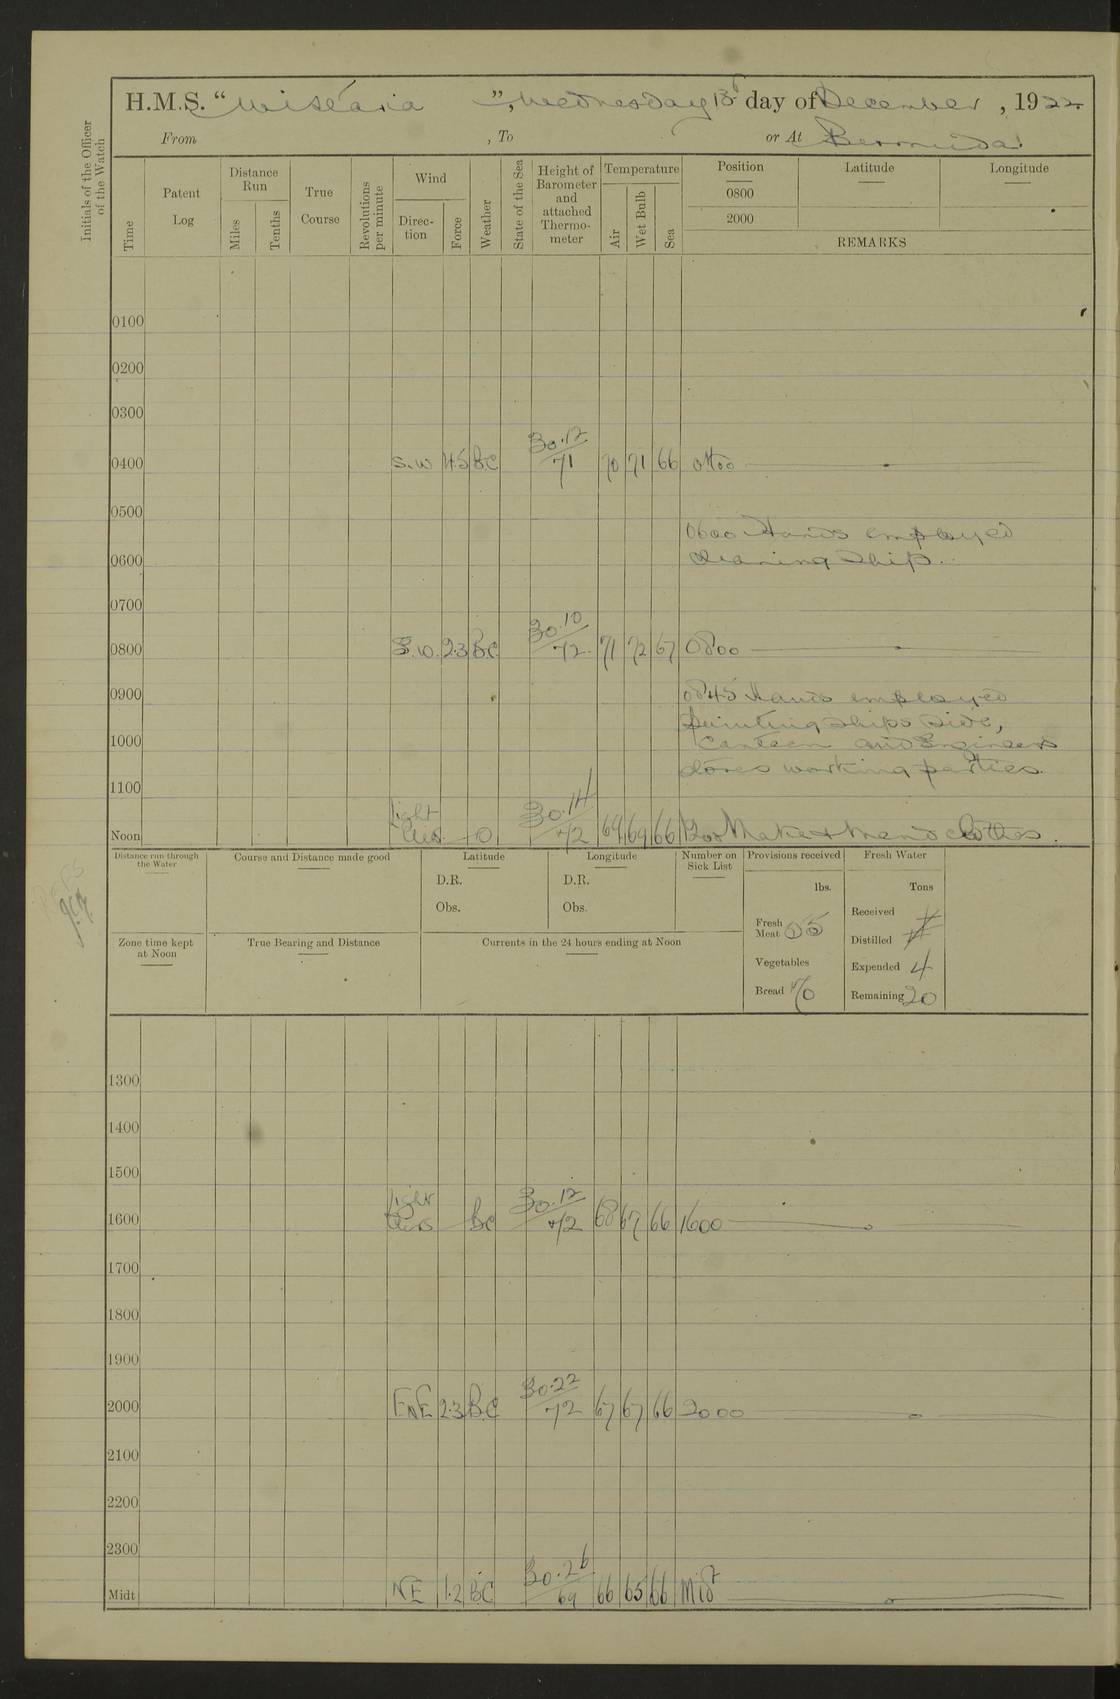 H.M.S. “Wistaria”, Wednesday 13th day of December, 1922
From , To or At Bermuda.
Initials of the Officer of the Watch
Time
Patent Log
Distance Run
Miles
Tenths
True Course
Revolutions per minute
Wind
Direction
Force
Weather
State of the Sea
Height of Barometer and attached Thermometer
Temperature
Air
Wet Bulb
Sea
Position Latitude Longitude
0800
2000
REMARKS
0100
0200
0300
0400 S.W 4.5 BC 30.12/71 70 71 66 0400
0500
0600 Hands employed
0600 cleaning Ship.
0700
0800 S.W. 2.3 BC 30.10/72 71 72 67 0800
0900 0845 Hands employed
painting ships side,
1000 Canteen and Engineers
stores working parties.
1100
Noon light airs O 30.14/72 69 69 66 1200 Make & Mend Clothes.
Distance run through the Water
Course and Distance made good
Latitude
D.R.
Obs.
Longitude
D.R.
Obs.
Number on Sick List
Provisions received
lbs.
Fresh Meat
Vegetables
Bread 70
Fresh Water
Tons
Received
Distilled
Expended 4
Remaining 20
Zone time kept at Noon
True Bearing and Distance
Currents in the 24 hours ending at Noon
1300
1400
1500
1600 light airs BC 30.12/72 68 67 66 1600
1700
1800
1900
2000 ENE 2.3 B.C 30.22/72 67 67 66 2000
2100
2200
2300
Midt NE 1.2 BC 30.26/69 66 65 66 Midt